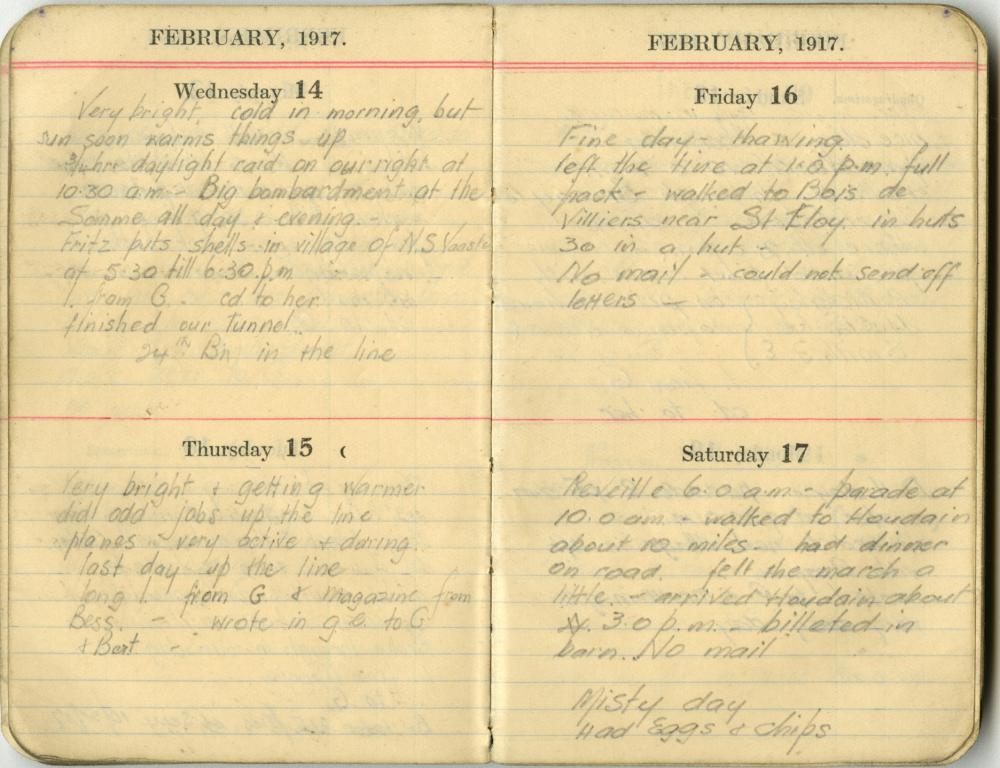 FEBRUARY, 1917.
Wednesday 14
Very bright, cold in morning, but
sun soon warms things up
daylight raid on our right at
10.30 a.m - Big bombardment at the
Somme all day & evening. -
Fritz puts shells in village of N.S. Vaast
at 5.30 till 6.30 p.m
l. from G. - cd to her
finished our tunnel..
24th Bn in the line
Thursday 15
Very bright & getting warmer
did odd jobs up the line
planes - very active & daring.
last day up the line
long l. from G & magazine from
Bess. - wrote in g.e. to G
& Bert -
FEBRUARY, 1917.
Friday 16
Fine day - thawing.
left the line at p.m. full
pack - walked to Bois de
Villiers near St Eloy. in huts
30 in a hut -
No mail - could not send off
letters -
Saturday 17
Reveille 6.0 a.m - parade at
10.0 am - walked to Houdain
about 10 miles - had dinner
on road. felt the march a
little. - arrived Houdain about
3.0 p.m. - billeted in
barn. No mail
Misty day
Had Eggs & chips